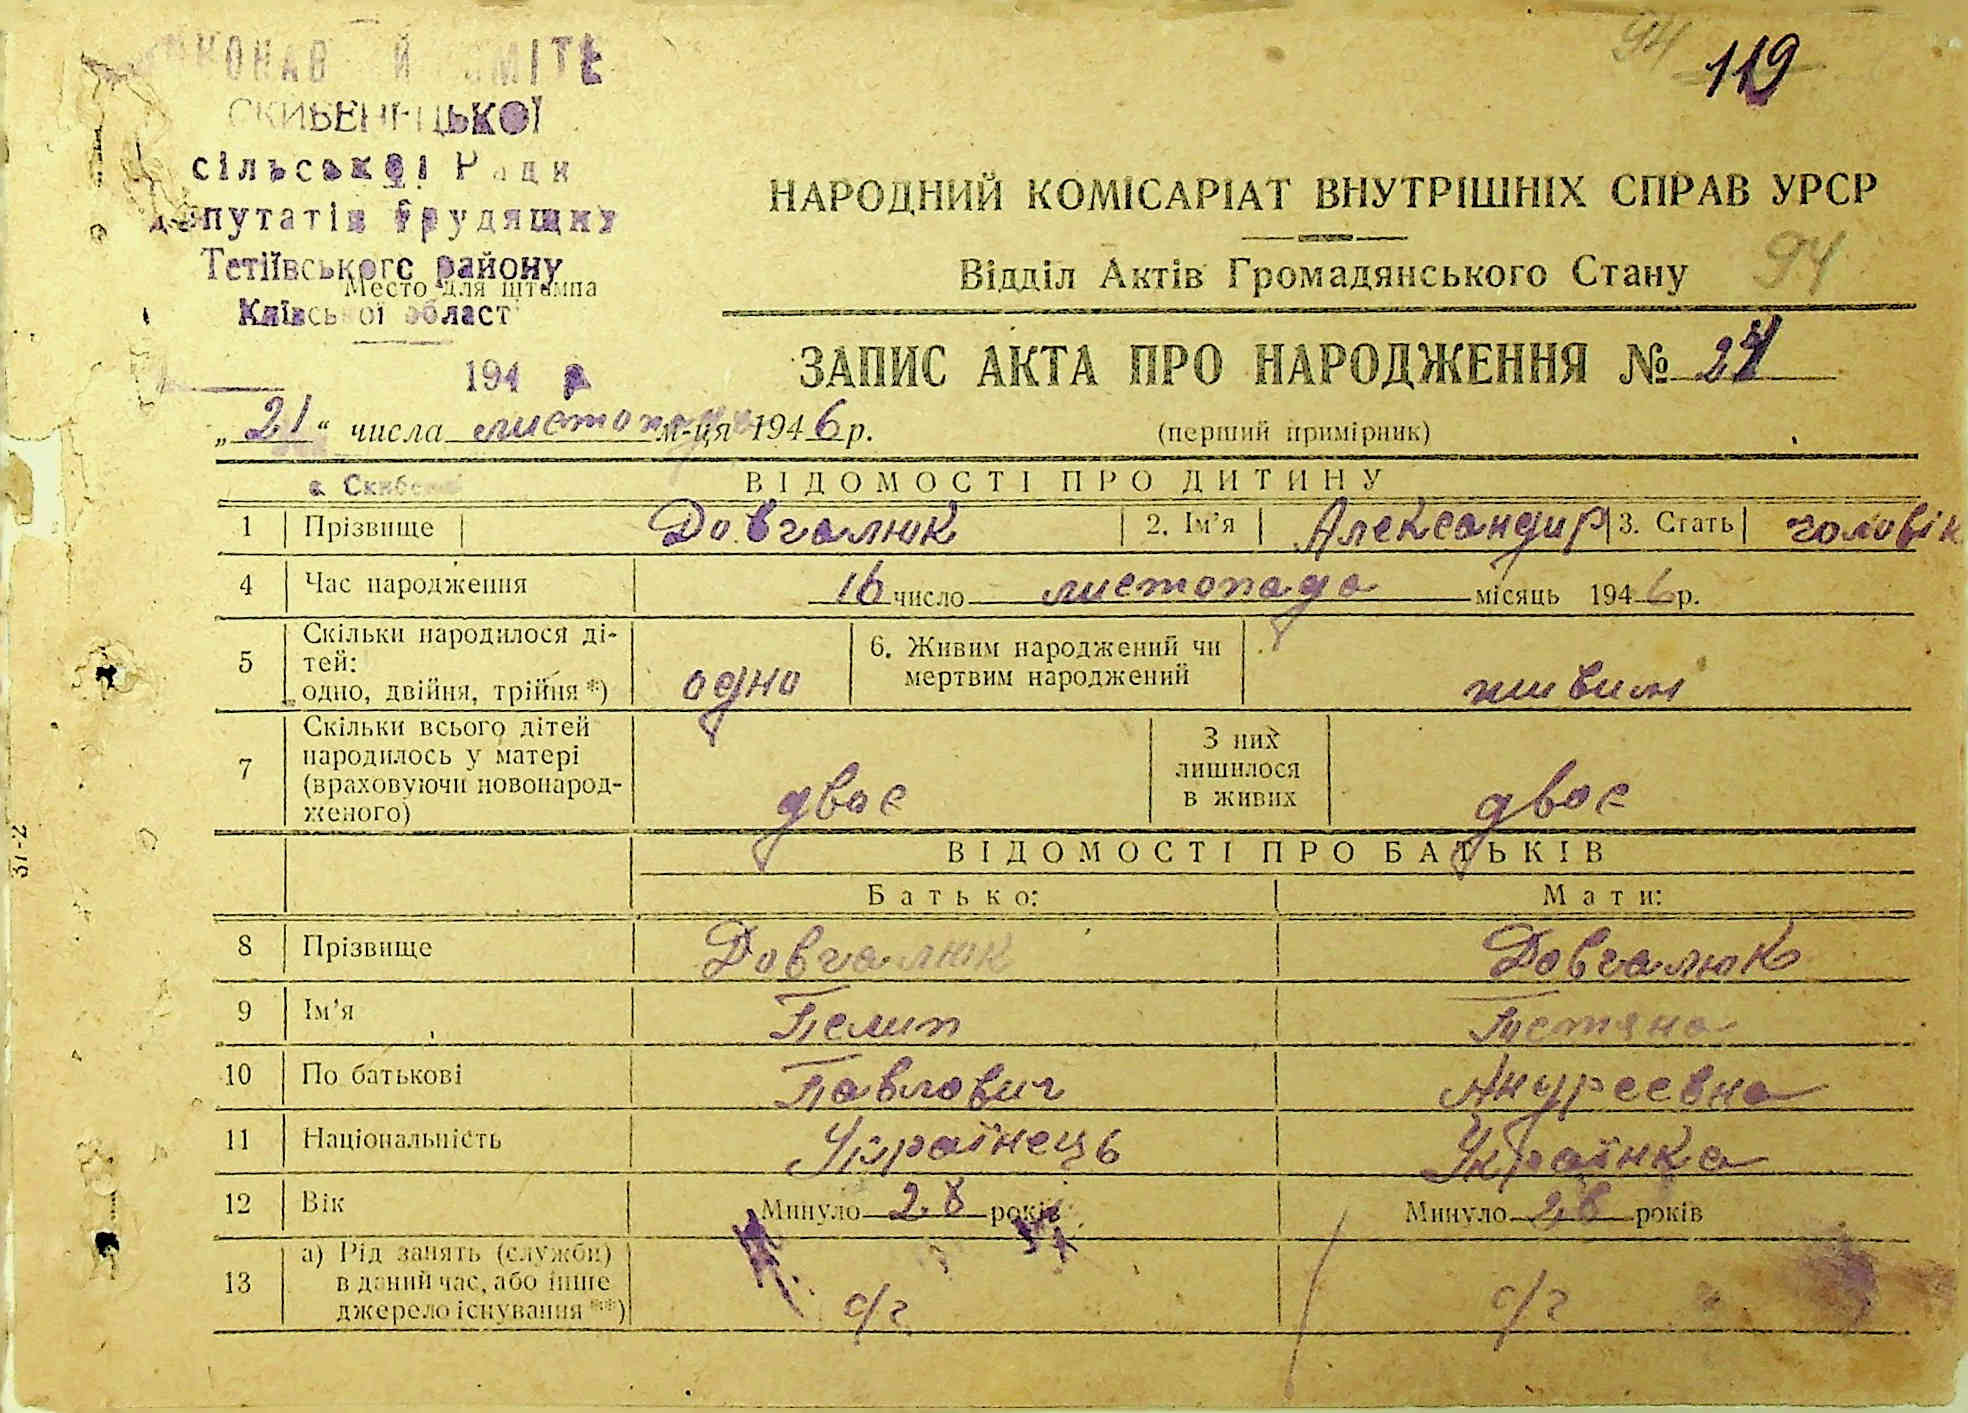 94 119
СКИБЕНЕЦЬКОЇ
сільської Ради
депутатів трудящих
Тетіївського району
Место для штампа
Київської області
194
НАРОДНИЙ КОМІСАРІАТ ВНУТРІШНІХ СПРАВ УРСР
Відділ Актів Громадянського Стану 94
ЗАПИС АКТА ПРО НАРОДЖЕННЯ №
„21“ числа листопада м-ця 1946 р. (перший примірник)
ВІДОМОСТІ ПРО ДИТИНУ
1 Прізвище Довгалюк 2. Ім’я Александир 3. Стать чоловік
4 Час народження 16 число листопада місяць 1946 р.
5 Скільки народилося ді-
тей:
одно, двійня, трійня *) одно 6. Живим народжений чи
мертвим народжений живим
7 Скільки всього дітей
народилось у матері
(враховуючи новонарод-
женого) двоє З них
лишилося
в живих двоє
ВІДОМОСТІ ПРО БАТЬКІВ
Батько: Мати:
8 Прізвище Довгалюк Довгалюк
9 Ім’я Пелип Тетяна
10 По батькові Павлович Андреевна
11 Національність Українець Українка
12 Вік Минуло 28 років Минуло 26 років
13 а) Рід занять (служби)
в даний час, або інше
джерело існування **) с/г с/г
37-2